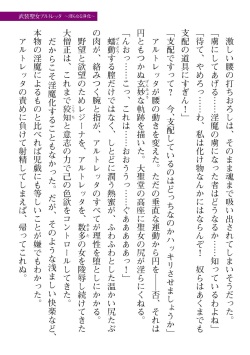 激しい腰の打ちおろしは、そのまま魂まで吸い出されてしまいそうだった。
「虜にしてあげる……淫魔の虜になった者はどうなるか……知っているわよね」
「待て、やめろっ……わ、私は化け物なんかにはならんぞ！　奴らはあくまでも
支配の道具にすぎん！」
「支配ですって？　今、支配しているのはどっちなのかハッキリさせましょうか」
アルトレッタが腰の動きを変えた。ただの垂直な運動から円を――否、それは
円ともつかぬ玄妙な軌跡。大聖堂の高座に聖女の尻が淫らにくねる。
「んおっ……こっ、これは……おおううっ……ぐああああああっ！」
蠕動する膣だけではなく、しとどに潤う熱蜜が、ふわふわとした温かい尻たぶ
の肉が、絡みつく腕と指が、アルトレッタのすべてが理性を堕としにかかる。
野望と欲望のためレジーナを、アルトレッタを、数多の女を陵辱し続けてきた
大僧正は、これまで鋭い知と意志の力で己の色欲をコントロールしてきた。
だからこそ淫魔化することもなかった。だが、そのような浅ましい快楽など、
本物の淫魔によるものと比べれば児戯にも等しいことが嫌でもわかった。
アルトレッタの責めに自制が崩壊してしまえば、帰ってこれぬ。